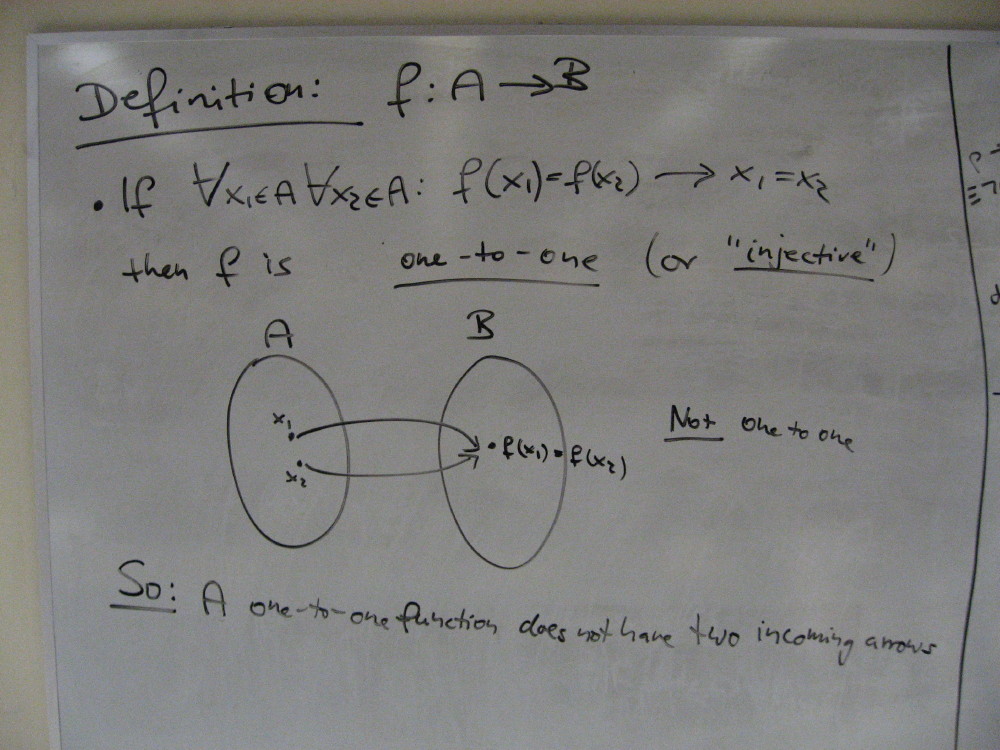 Definition: f: A → B
• If ∀x₁∈A ∀x₂∈A: f(x₁)=f(x₂) → x₁=x₂
then f is one-to-one (or "injective")
A B
x₁
x₂
• f(x₁) = f(x₂)
Not one to one
So: A one-to-one function does not have two incoming arrows